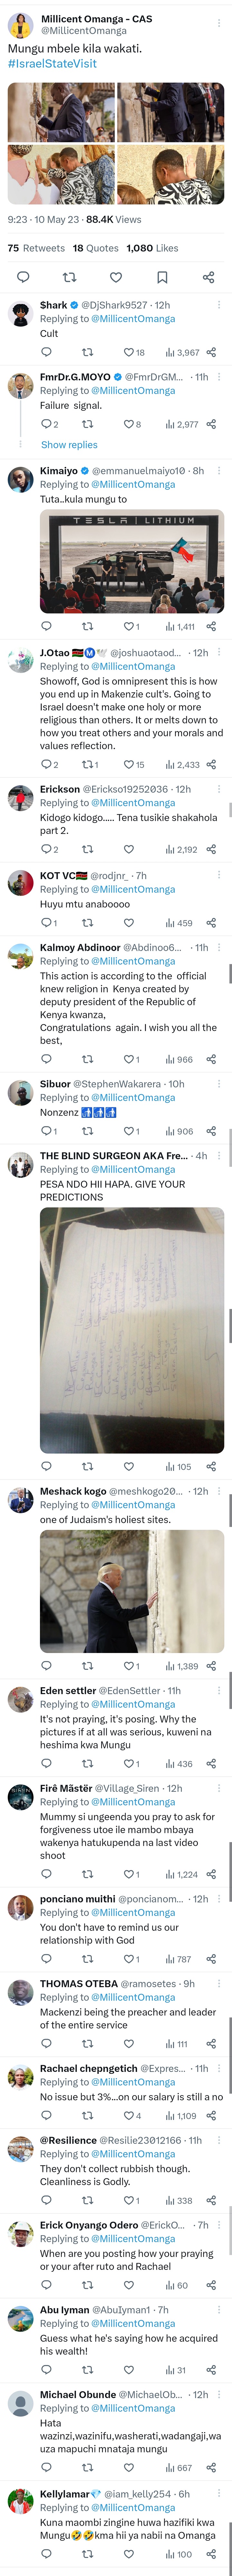 Millicent Omanga - CAS
@MillicentOmanga
Mungu mbele kila wakati.
#IsraelStateVisit
9:23 · 10 May 23 · 88.4K Views
75 Retweets 18 Quotes 1,080 Likes
$hark @DjShark9527 · 12h
Replying to @MillicentOmanga
Cult
18 3,967
FmrDr.G.MOYO @FmrDrGM... · 11h
Replying to @MillicentOmanga
Failure signal.
2 8 2,977
Show replies
Kimaiyo @emmanuelmaiyo10 · 8h
Replying to @MillicentOmanga
Tuta..kula mungu to
TESLA | LITHIUM
1 1,411
J.Otao 🇰🇪Ⓜ️🕊 @joshuaotaod... · 12h
Replying to @MillicentOmanga
Showoff, God is omnipresent this is how
you end up in Makenzie cult's. Going to
Israel doesn't make one holy or more
religious than others. It or melts down to
how you treat others and your morals and
values reflection.
2 1 15 2,433
Erickson @Erickso19252036 · 12h
Replying to @MillicentOmanga
Kidogo kidogo..... Tena tusikie shakahola
part 2.
2 2,192
KOT VC🇰🇪 @rodjnr_ · 7h
Replying to @MillicentOmanga
Huyu mtu anaboooo
1 459
Kalmoy Abdinoor @Abdinoo6... · 11h
Replying to @MillicentOmanga
This action is according to the official
knew religion in Kenya created by
deputy president of the Republic of
Kenya kwanza,
Congratulations again. I wish you all the
best,
1 966
Sibuor @StephenWakarera · 10h
Replying to @MillicentOmanga
Nonzenz 🚮🚮🚮
1 1 906
THE BLIND SURGEON AKA Fre... · 4h
Replying to @MillicentOmanga
PESA NDO HII HAPA. GIVE YOUR
PREDICTIONS
105
Meshack kogo @meshkogo20... · 12h
Replying to @MillicentOmanga
one of Judaism's holiest sites.
1 1,389
Eden settler @EdenSettler · 11h
Replying to @MillicentOmanga
It's not praying, it's posing. Why the
pictures if at all was serious, kuweni na
heshima kwa Mungu
1 436
Firê Mãstër @Village_Siren · 12h
Replying to @MillicentOmanga
Mummy si ungeenda you pray to ask for
forgiveness utoe ile mambo mbaya
wakenya hatukupenda na last video
shoot
1 1,224
ponciano muithi @poncianom... · 12h
Replying to @MillicentOmanga
You don't have to remind us our
relationship with God
1 787
THOMAS OTEBA @ramosetes · 9h
Replying to @MillicentOmanga
Mackenzi being the preacher and leader
of the entire service
111
Rachael chepngetich @Expres... · 11h
Replying to @MillicentOmanga
No issue but 3%...on our salary is still a no
4 1,109
@Resilience @Resilie23012166 · 11h
Replying to @MillicentOmanga
They don't collect rubbish though.
Cleanliness is Godly.
1 338
Erick Onyango Odero @ErickO... · 7h
Replying to @MillicentOmanga
When are you posting how your praying
or your after ruto and Rachael
60
Abu Iyman @AbuIyman1 · 7h
Replying to @MillicentOmanga
Guess what he's saying how he acquired
his wealth!
31
Michael Obunde @MichaelOb... · 12h
Replying to @MillicentOmanga
Hata
wazinzi,wazinifu,washerati,wadangaji,wa
uza mapuchi mnataja mungu
667
Kellylamar💎 @iam_kelly254 · 6h
Replying to @MillicentOmanga
Kuna maombi zingine huwa hazifiki kwa
Mungu🤣🤣kma hii ya nabii na Omanga
100